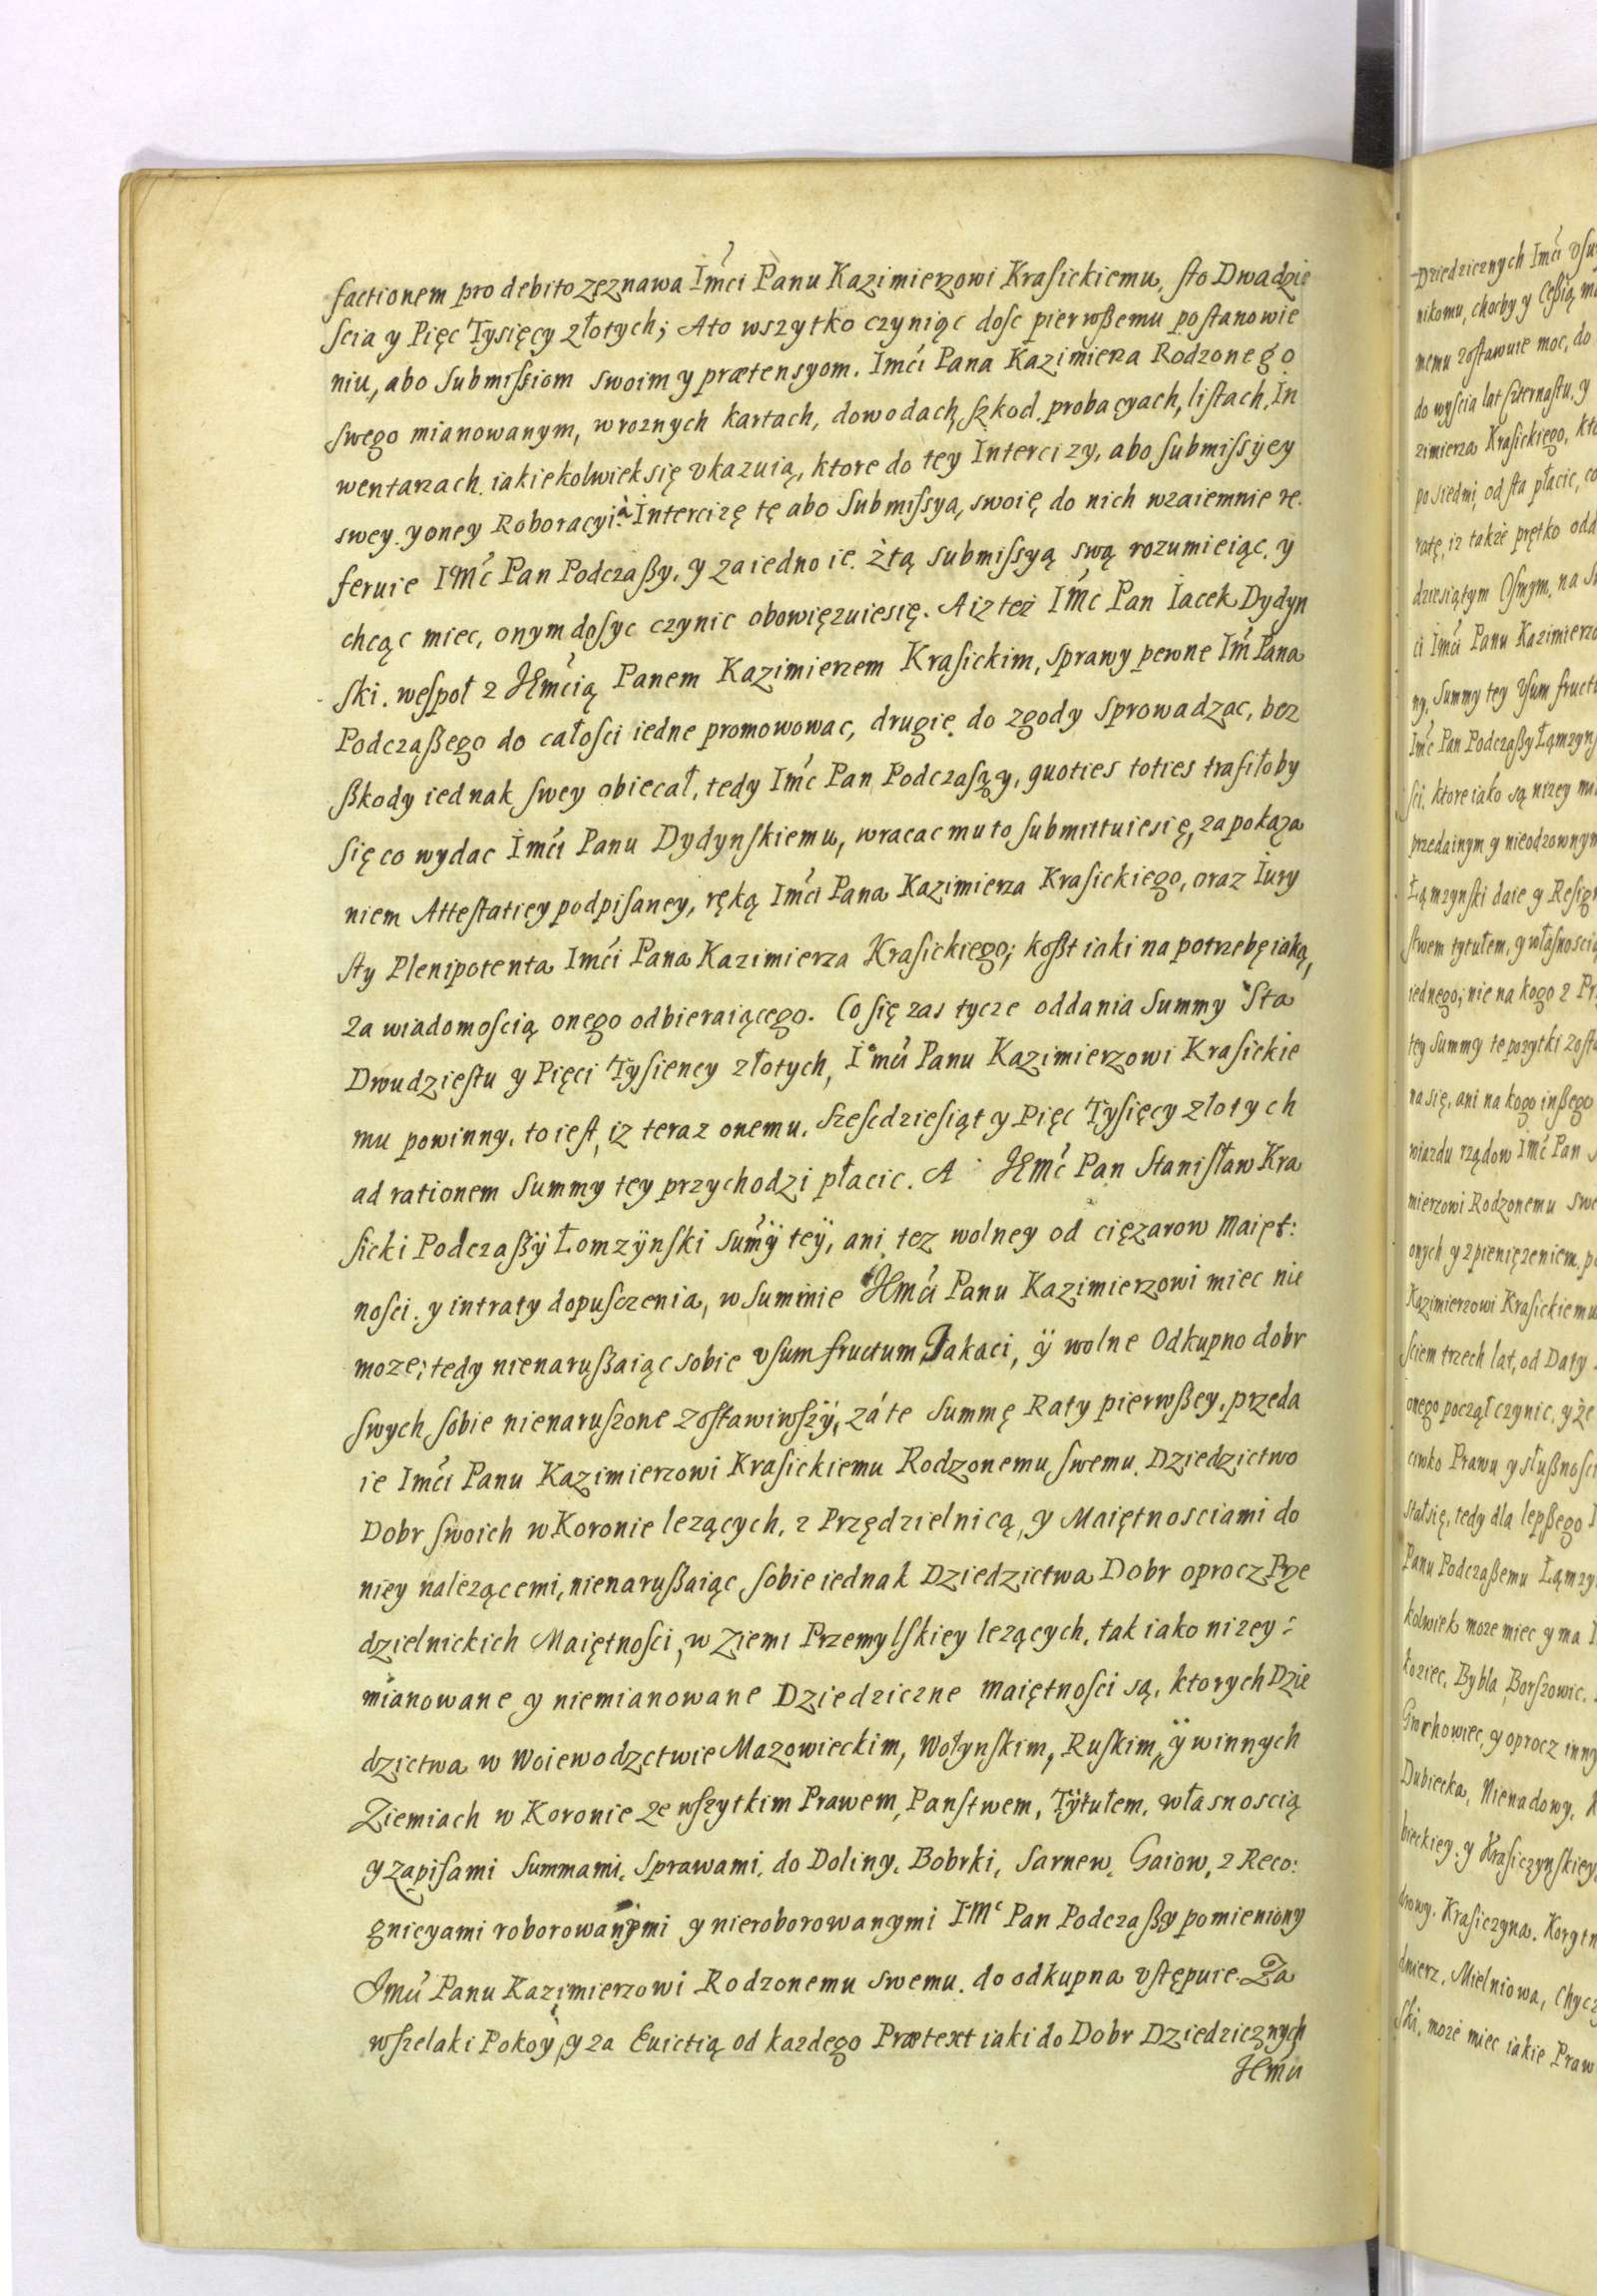 factionem pro debito zeznawa Imći Panu Kazimierzowi Krasickiemu, sto Dwadzie
scia y Pięc Tysięcy złotych; Ato wszytko czyniąc dosc pierwßemu postanowie
niu, abo submissiom swoim y prætensyom. Imći Pana Kazimierza Rodzonego
swego mianowanym, w roznych kartach, dowodach, szkod. probacyach, listach, In
wentarzach. iakiekolwiek się vkazuią, ktore do tey Intercizy, abo submissyey
swey. y oney Roboracyi. à Intercizę tę abo submissyą, swoię do nich wzaiemnie re.
feruie IMć Pan Podczaßy. y za iedno ie. z tą submissyą swą rozumieiąc. y
chcąc miec, onym dosyc czynic obowięzuiesię. A iz tez IMć Pan Iacek Dydyn
ski. wespoł z JEmćią Panem Kazimierzem Krasickim, sprawy pewne Im Pana
Podczaßego do całosci iedne promowowac, drugie. do zgody sprowadzac, bez
ßkody iednak swey obiecał, tedy Imć Pan Podczaszy, quoties toties trafiłoby
się co wydac Imći Panu Dydynskiemu, wracac mu to submittuiesię, za pokaza
niem Attestatiey podpisaney, ręką Imći Pana Kazimierza Krasickiego, oraz Iury
sty Plenipotenta Imći Pana Kazimierza Krasickiego; koßt iaki na potrzebę iaką,
za wiadomoscią onego odbieraiącego. Co się zas tycze oddania Summy Sta
Dwudziestu y Pięci Tysiency złotych, Imći Panu Kazimierzowi Krasickie
mu powinny. to iest, iz teraz onemu. szescdziesiąt y Pięc Tysięcy złotych
ad rationem Summy tey przychodzi płacic. A JEmć Pan Stanisław Kra
sicki Podczaßÿ Łomzÿnski sumÿ teÿ, ani tez wolney od cięzarow Maięt:
nosci. y intraty dopusczenia, w summie JEmći Panu Kazimierzowi miec nie
moze; tedy nienarußaiąc sobie vsum fructum, Jakaci, ÿ wolne Odkupno dobr
swych sobie nienaruszone zostawiwszÿ, zá te Summę Raty pierwßey. przeda
ie Imći Panu Kazimierzowi Krasickiemu Rodzonemu swemu. Dziedzictwo
Dobr swoich w Koronie lezących, z Przędzielnicą, y Maiętnosciami do
niey nalezącemi, nienarußaiąc, sobie iednak Dziedzictwa Dobr oprocz Prze
dzielnickich Maiętnosci, w Ziemi Przemylskiey lezących, tak iako nizey:
mianowane y niemianowane Dziedziczne Maiętnosci są, ktorych Dzie
dzictwa w Woiewodzctwie Mazowieckim, Wołynskim, Ruskim, ÿ w innych
Ziemiach w Koronie ze wszytkim Prawem, Panstwem, Tÿtułem, własnoscią
y zapisami Summami. sprawami. do Doliny. Bobrki, Sarnew. Gaiow, z Reco:
gnicyami roborowanymi y nieroborowanymi IMc Pan Podczaßy pomieniony
Imći Panu Kazimierzowi Rodzonemu swemu. do odkupna vstępuie. Za
wszelaki Pokoy, y za Euictią od kazdego Prætext iaki do Dobr Dziedzicznych
JEmći
Dziedzicznych Imći
nikomu, chocby y Ceßią
memu zostawuie moc, do
do wyscia lat szternastu. y
zimierza Krasickiego,
po siedmi, od sta płacic, co
ratę, iz takze prętko
dziesiątym Osmym. na
ci Imći Panu Kazimierzo
ny. Summy tey Vsum
Imć Pan Podczaßy Łąmzyns
sci. ktore iako są nizey
przedainym y nieodzownym
Łąmzynski daie y
stwem tytułem, y własnoscią
iednego; nie na kogo z
tey Summy te pozytki
na się, ani na kogo inßego
wiazdu rządow IMć Pan
mierzowi Rodzonemu
onych y zpieniężeniem.
Kazimierzowi Krasickiemu
sciem trzech lat, od Daty
onego począł czynic. y że
ciwko Prawu y słußnosci
stałsię, tedy dla lepßego
Panu Podczaßemu
kolwiek moze miec y ma
koziec, Bybla, Borszowic.
Grochowiec, y oprocz
Dubiecka, Nienadowy.
bieckiey. y Krasiczynskiey
Krasiczyna.
Mielniowa,
ski. może miec iakie Praw